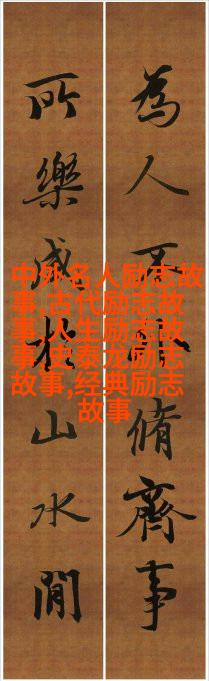 為人不脩齊事
所樂咸在山水間
中外名人励志故
事,古代励志故
事,人生励志故
事,史泰龙励志
故事,经典励志
故事